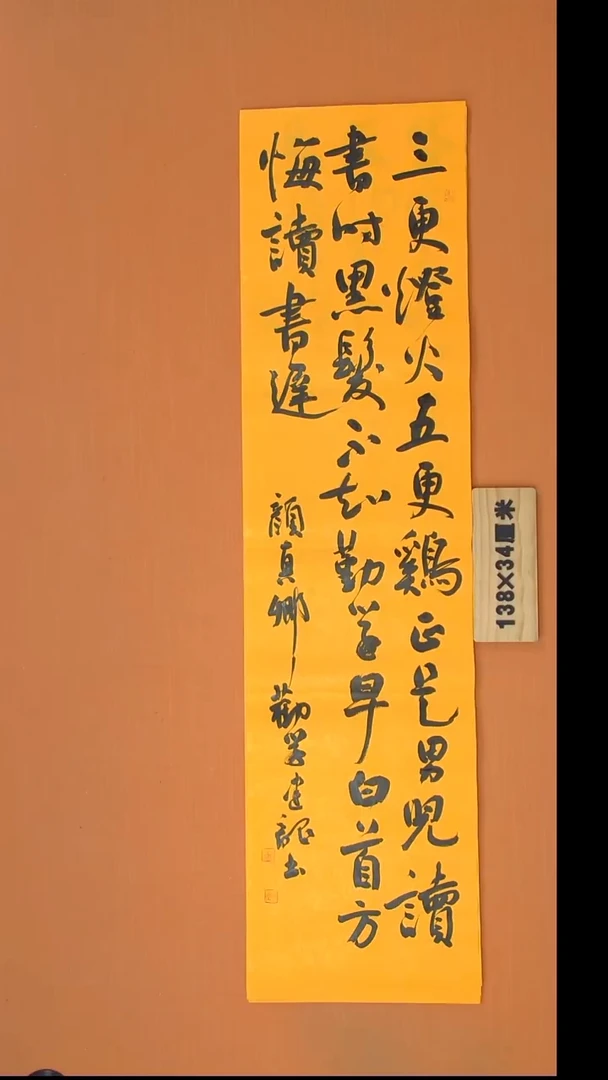 三更燈火五更鷄正是男児讀
書时黑髮不知勤学早白首方
悔讀書遲
顏真卿 勸学建
138×34厘米